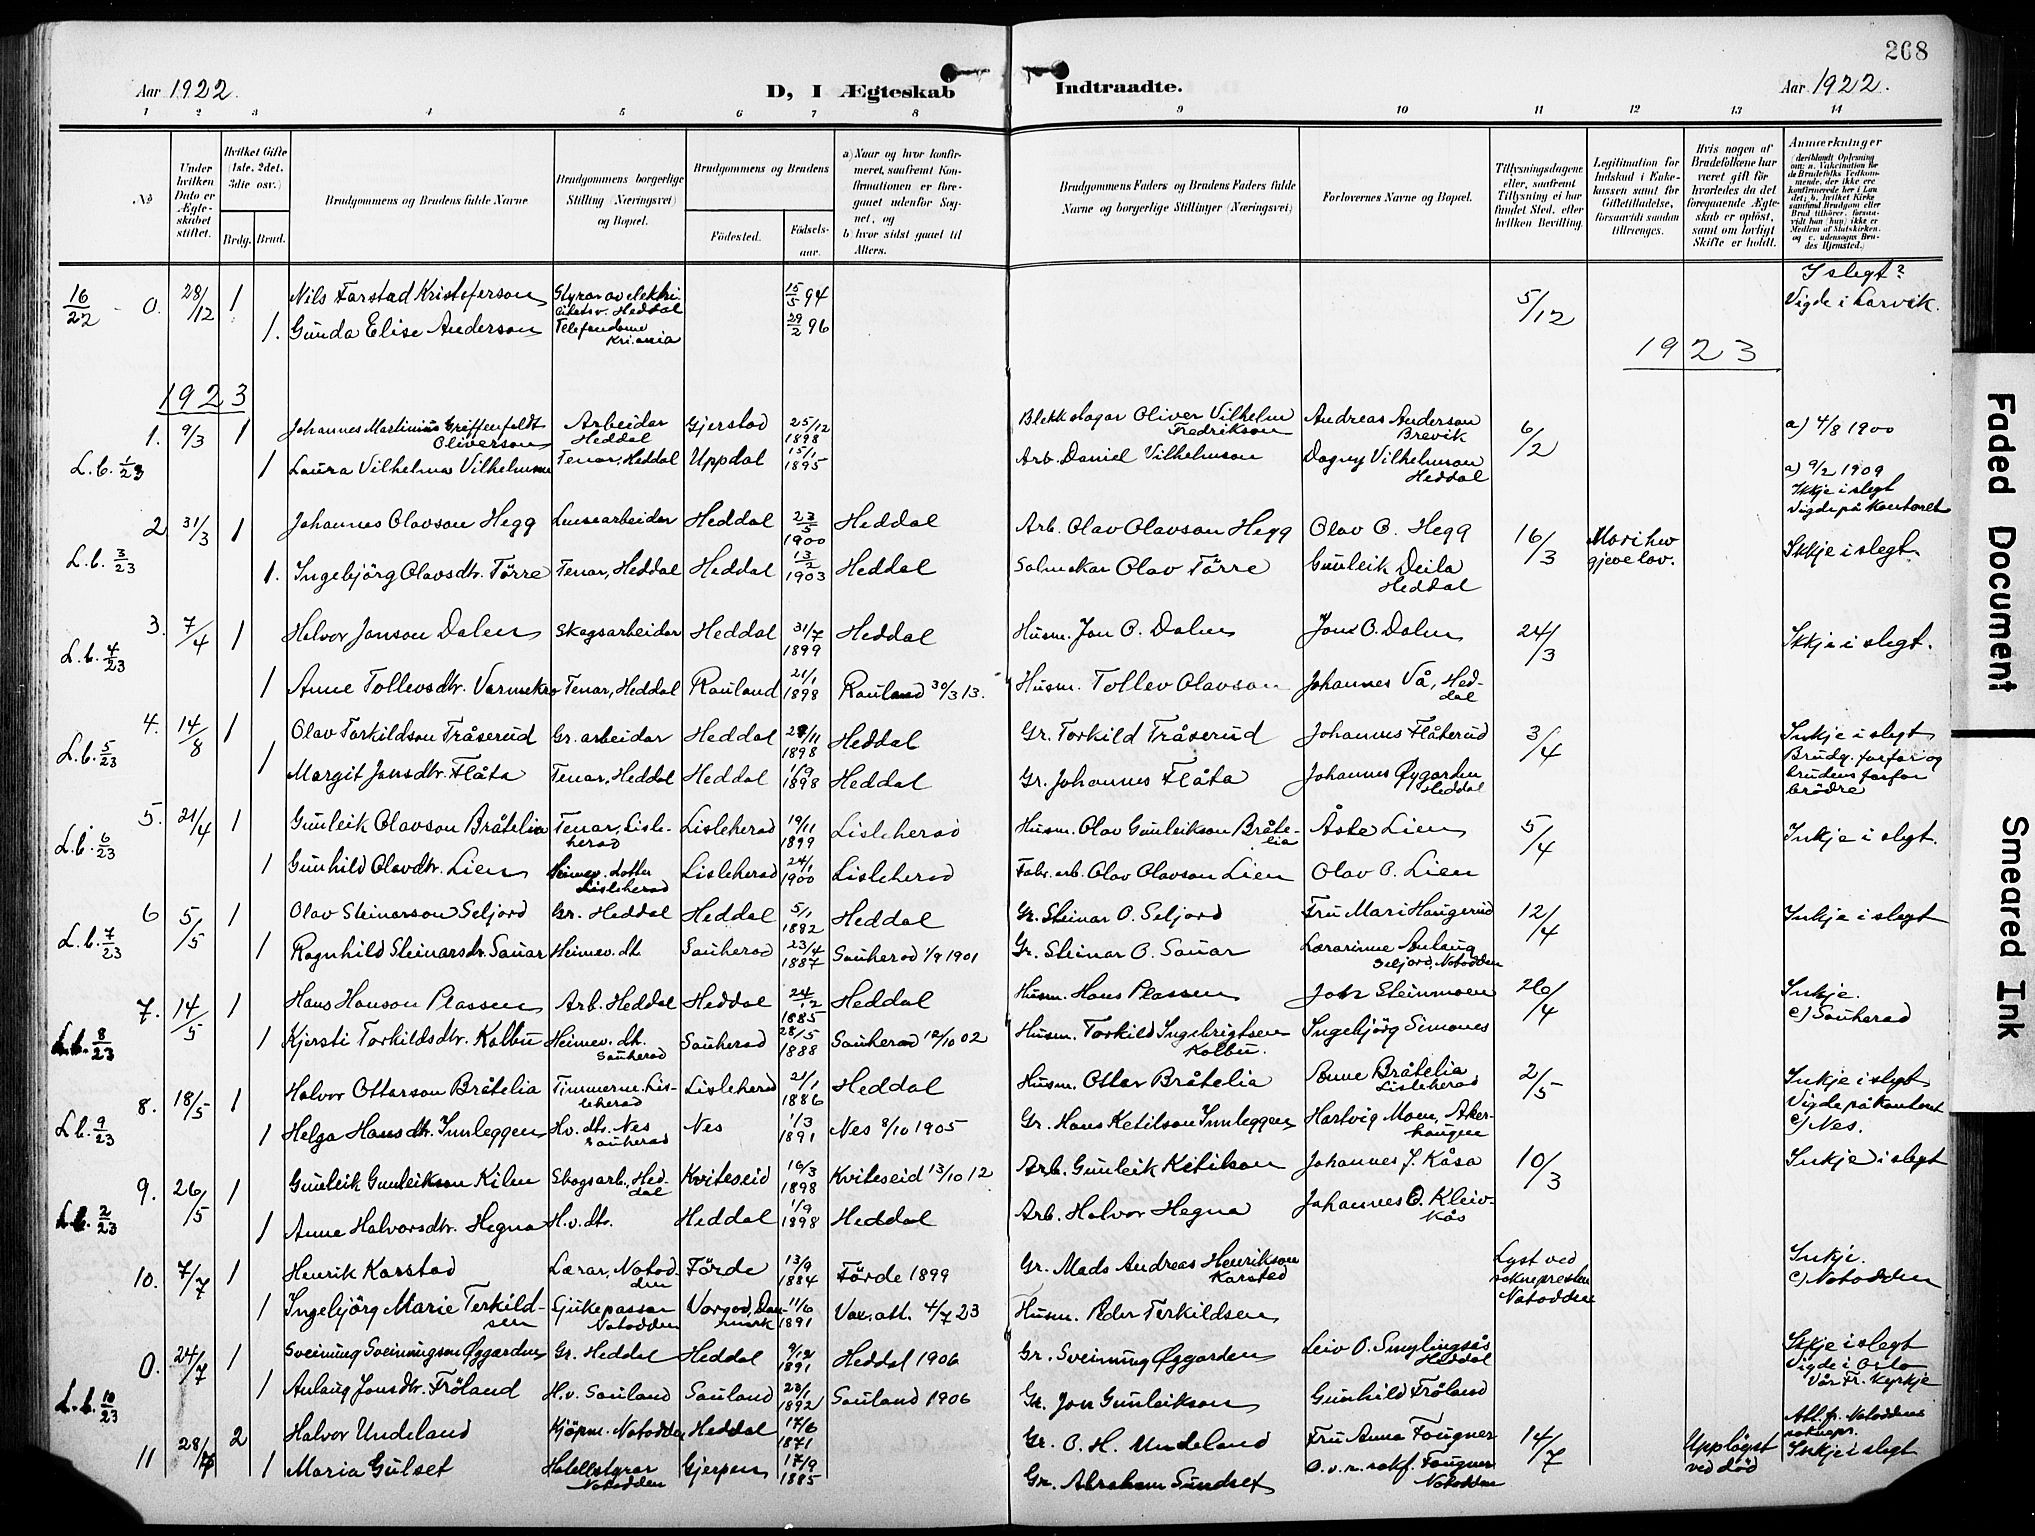 268
Aar 1922.
D, I Ægteskab Indtraadte.
Aar 1922.
1 2 3 4 5 6 7 8 9 10 11 12 13 14
No
Under hvilken Dato er Ægteskabet stiftet.
Hvilket Gifte (1ste, 2det, 3die osv.)
Brdg. Brud.
Brudgommens og Brudens fulde Navne
Brudgommens borgerlige Stilling (Næringsvei) og Bopæl.
Brudgommens og Brudens
Fødested.
Fødselsaar.
a) Naar og hvor konfirmeret, saafremt Konfirmationen er foregaaet udenfor Sognet, og
b) hvor sidst gaaet til Alters.
Brudgommens Faders og Brudens Faders fulde Navne og borgerlige Stillinger (Næringsvei)
Forlovernes Navne og Bopæl.
Tillysningsdagene eller, saafremt Tillysning ei har fundet Sted, efter hvilken Bevilling.
Legitimation for Indskud i Enkekassen samt for Giftetilladelse, forsaavidt saadan tiltrænges.
Hvis nogen af Brudefolkene har været gift før hvorledes da det foregaaende Ægteskab er opløst, samt om lovligt Skifte er holdt.
Anmærkninger
(deriblandt Oplysning om: a. Vakcination for de Brudefolks Vedkommende, der ikke ere konfirmerede her i Landet; b. hvilket Kirkesamfund Brudgom eller Brud tilhører, forsaavidt han (hun) ikke er Medlem af Statskirken, og c. udensogns Brudes Hjemsted.)
16/22 0. 28/12 1 Nils Farstad Kristoferson Styrar av elektricitetsv. Heddal 15/5 94 5/12 I slegt? Vigde i Larvik.
1. Gunda Elise Anderson Telefondame Kri.ania 29/2 96
1923
1923
1. 9/3 1 Johannes Martinius Griffenfeldt Oliverson Arbeidar Heddal Gjerstad 25/12 1898 Blekkslagar Oliver Vilhelm Fredrikson Andreas Anderson Brevik 6/2 a) 4/8 1900
L.b. 1/23 1 Laura Vilhelma Vilhelmson Tenar, Heddal Uppdal 15/1 1895 Arb. Daniel Vilhelmson Dagny Vilhelmson Heddal a) 9/2 1909 Ikkje i slegt Vigde på kontoret
2 31/3 1 Johannes Olavson Hegg Lensearbeidar Heddal 23/5 1900 Heddal Arb. Olav Olavson Hegg Olav O. Hegg 16/3 Mori hev gjeve lov. Ikkje i slegt.
L.b. 3/23 1. Ingebjörg Olavsdtr. Törre Tenar, Heddal Heddal 13/2 1903 Heddal Salmakar Olav Törre Gunleik Deila Heddal
3. 7/4 1 Halvor Jonson Dalen Skogsarbeidar Heddal 31/7 1899 Heddal Husm. Jon O. Dalen Jon O. Dalen 24/3 Ikkje i slegt.
L.b. 4/23 1 Anne Tollevsdtr. Varmekro Tenar, Heddal Rauland 21/1 1898 Rauland 30/3 13. Husm. Tollev Olavson Johannes Vå, Heddal
4. 14/8 1 Olav Torkildson Tråserud Gr. arbeidar Heddal 28/11 1898 Heddal Gr. Torkild Tråserud Johannes Flåterud 3/4 Inkje i slegt Brudg. farfar og brudens farfar brödre
L.b. 5/23 1 Margit Jonsdtr. Flåta Tenar, Heddal Heddal 16/9 1898 Heddal Gr. Johannes Flåta Johannes Øygarden Heddal
5. 21/4 1 Gunleik Olavson Bråtelia Tenar, Lisleherad Lisleherad 19/11 1899 Lisleherad Husm. Olav Gunleikson Bråtelia Åste Lien 5/4 Inkje i slegt.
L.b. 6/23 1 Gunhild Olavdtr. Lien Heimev. dotter Lisleherad Lisleherad 24/1 1900 Lisleherad Fabr. arb. Olav Olavson Lien Olav O. Lien
6 5/5 1 Olav Steinarson Seljord Gr. Heddal Heddal 5/1 1882 Heddal Gr. Steinar O. Seljord Fru Mari Haugerud 12/4 Inkje i slegt
L.b. 7/23 1 Ragnhild Steinarsdtr. Sauar Heimev. dt. Sauherad 23/4 1887 Sauherad 1/9 1901 Gr. Steinar O. Sauar Lærarinne Aulaug Seljord, Notodden
7. 14/5 1 Hans Hanson Plassen Arb. Heddal Heddal 24/12 1885 Heddal Husm. Hans Plassen Jon Steinmoen 26/4 Inkje. c) Sauherad
L.b. 8/23 1 Kjersti Torkildsdtr. Kolbu Heimev. dt. Sauherad Sauherad 28/5 1888 Sauherad 12/10 02 Husm. Torkild Ingebrigtsen Kolbu. Ingebjörg Simones
8. 18/5 1 Halvor Ottarson Bråtelia Timmerm. Lisleherad Lisleherad 21/1 1886 Heddal Husm. Ottar Bråtelia Anne Bråtelia Lisleherad 2/5 Inkje i slegt Vigde på kontoret c) Nes.
L.b. 9/23 1 Helga Hansdtr. Innleggen Hv. dtr. Nes Sauherad Nes 1/3 1891 Nes 8/10 1905 Gr. Hans Ketilson Innleggen Hartvig Moen, Akerhaugen
9. 26/5 1 Gunleik Gunleikson Kilen Skogsarb. Heddal Kviteseid 16/3 1898 Kviteseid 13/10 12 Arb. Gunleik Ketilson Johannes J. Kåsa 10/3 Inkje i slegt
L.b. 2/23 1 Anne Halvorsdtr. Hegna H.v. dtr. Heddal 1/9 1898 Heddal Arb. Halvor Hegna Johannes O. Kleivkås
10. 7/7 1 Henrik Karstad Lærar, Notodden Förde 13/9 1884 Förde 1899 Gr. Mads Andreas Henrikson Karstad Lyst ved soknepresten Notodden Inkje. c) Notodden
1 Ingebjörg Marie Terkildsen Sjukepassar Notodden Vorgod, Danmark 11/6 1891 Vax. att. 4/7 23 Husm. Peder Terkildsen
0. 24/7 1 Sveinung Sveinungson Øygarden Gr. Heddal Heddal 9/12 1891 Heddal 1906 Gr. Sveinung Øygarden Leiv O. Smylingsås Heddal Ikkje i slegt Vigde i Oslo Vår Fr. kyrkje
L.b. 10/23 1 Aulaug Jonsdtr. Fröland H.v. Sauland Sauland 23/1 1892 Sauland 1906 Gr. Jon Gunleikson Gunhild Fröland
11 28/7 2 Halvor Undeland Kjöpm. Notodden Heddal 17/6 1871 Gr. O. H. Undeland Fru Anna Fougner 14/7 Upplöyst ved död Att. fr. Notoddens soknepr. Inkje i slegt
1 Maria Gulset Hotellstyrar Notodden Gjerpen 17/9 1885 Gr. Abraham Sundset O.v.r. sakf. Fougner Notodden
Faded Document
Smeared Ink